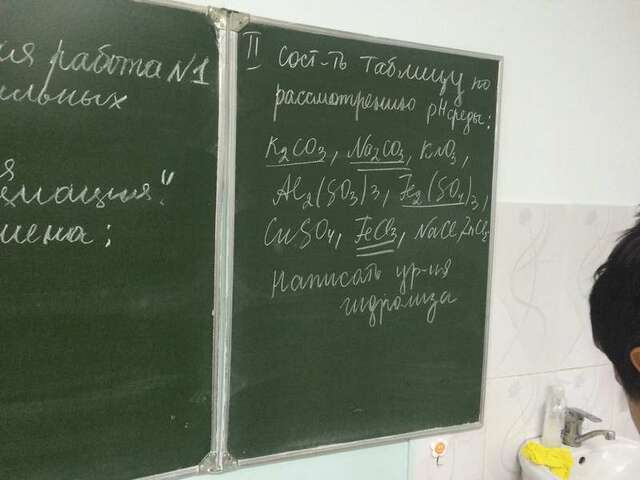 ия работа N1
ильных
ия
мация".
мена:
II Сост-ть таблицу по
рассмотрению pH среды:
K₂CO₃, Na₂CO₃, KNO₃,
Al₂(SO₃)₃, Fe₂(SO₄)₃,
CuSO₄, FeCl₃, NaCl, ZnCl₂
Написать ур-ия
гидролиза